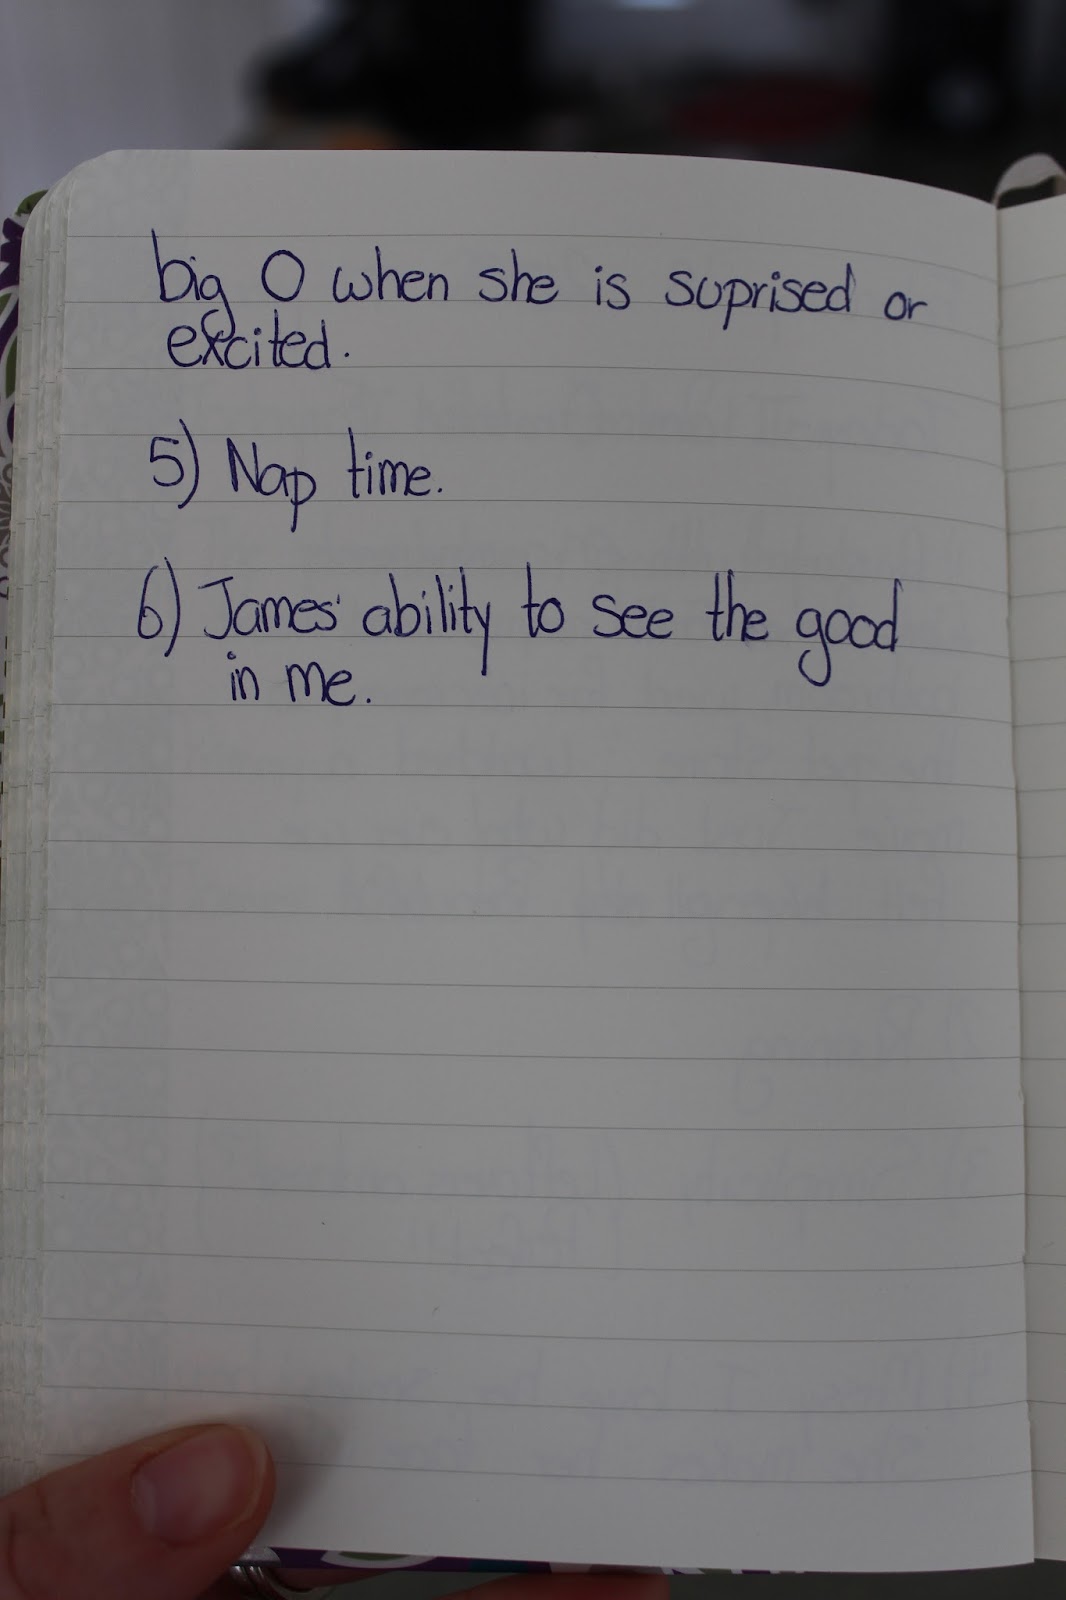 big O when she is suprised or
excited.
5) Nap time.
6) James' ability to see the good
in me.